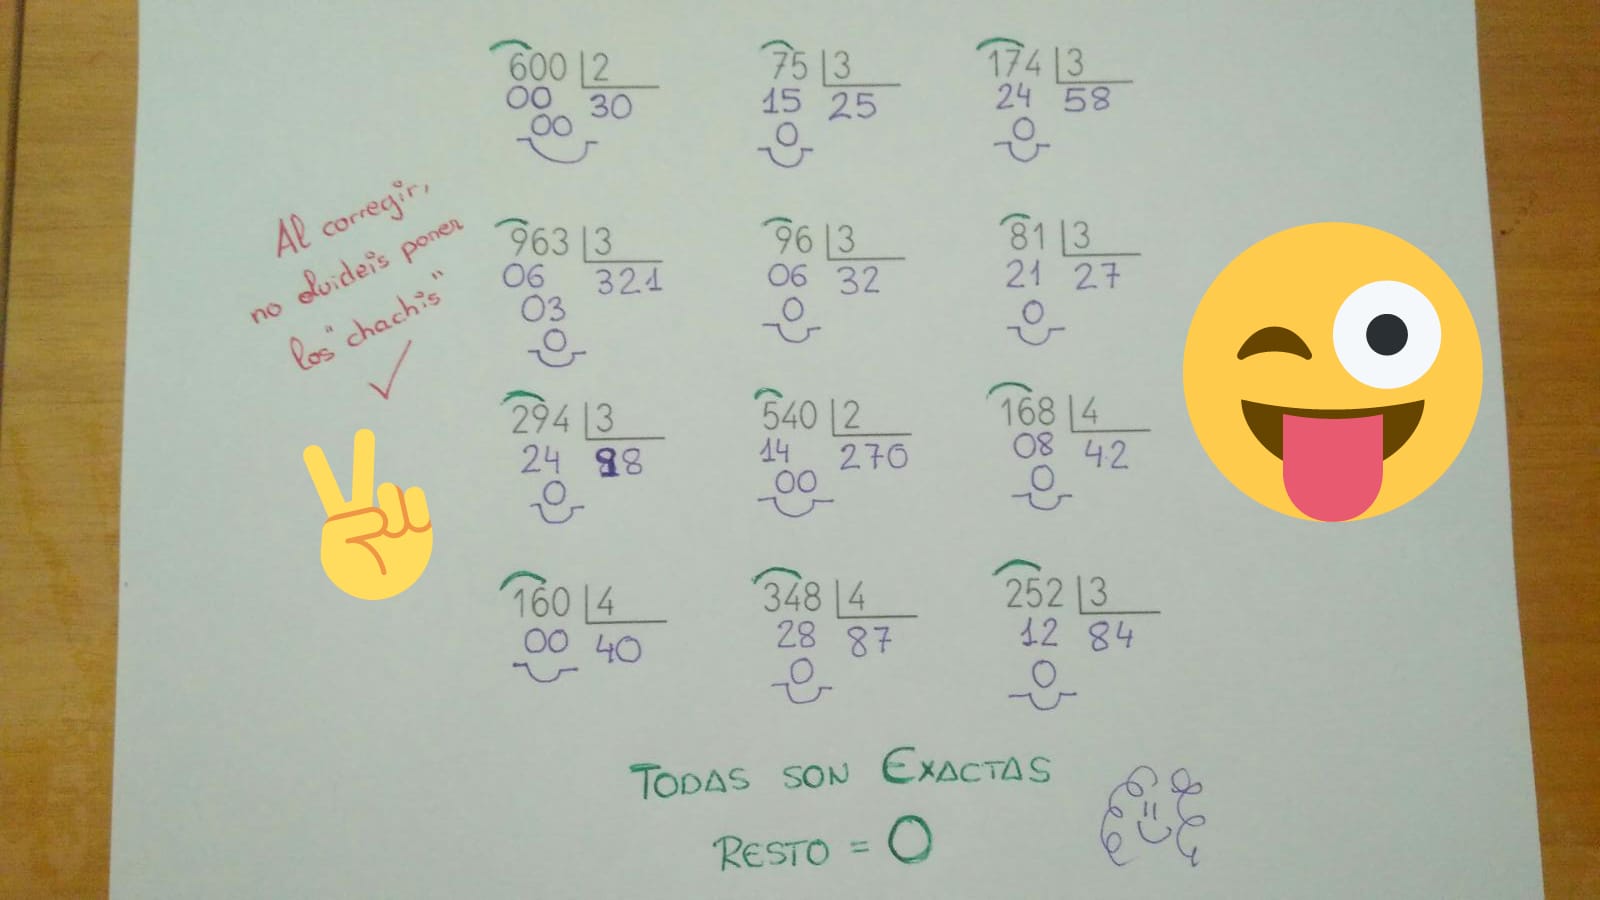 600 2
00 30
00
75 3
15 25
0
174 3
24 58
0
Al corregir,
no olvideis poner
los "chachis"
963 3
06 321
03
0
96 3
06 32
0
81 3
21 27
0
294 3
24 98
0
540 2
14 270
00
168 4
08 42
0
160 4
00 40
348 4
28 87
0
252 3
12 84
0
TODAS SON EXACTAS
RESTO = 0